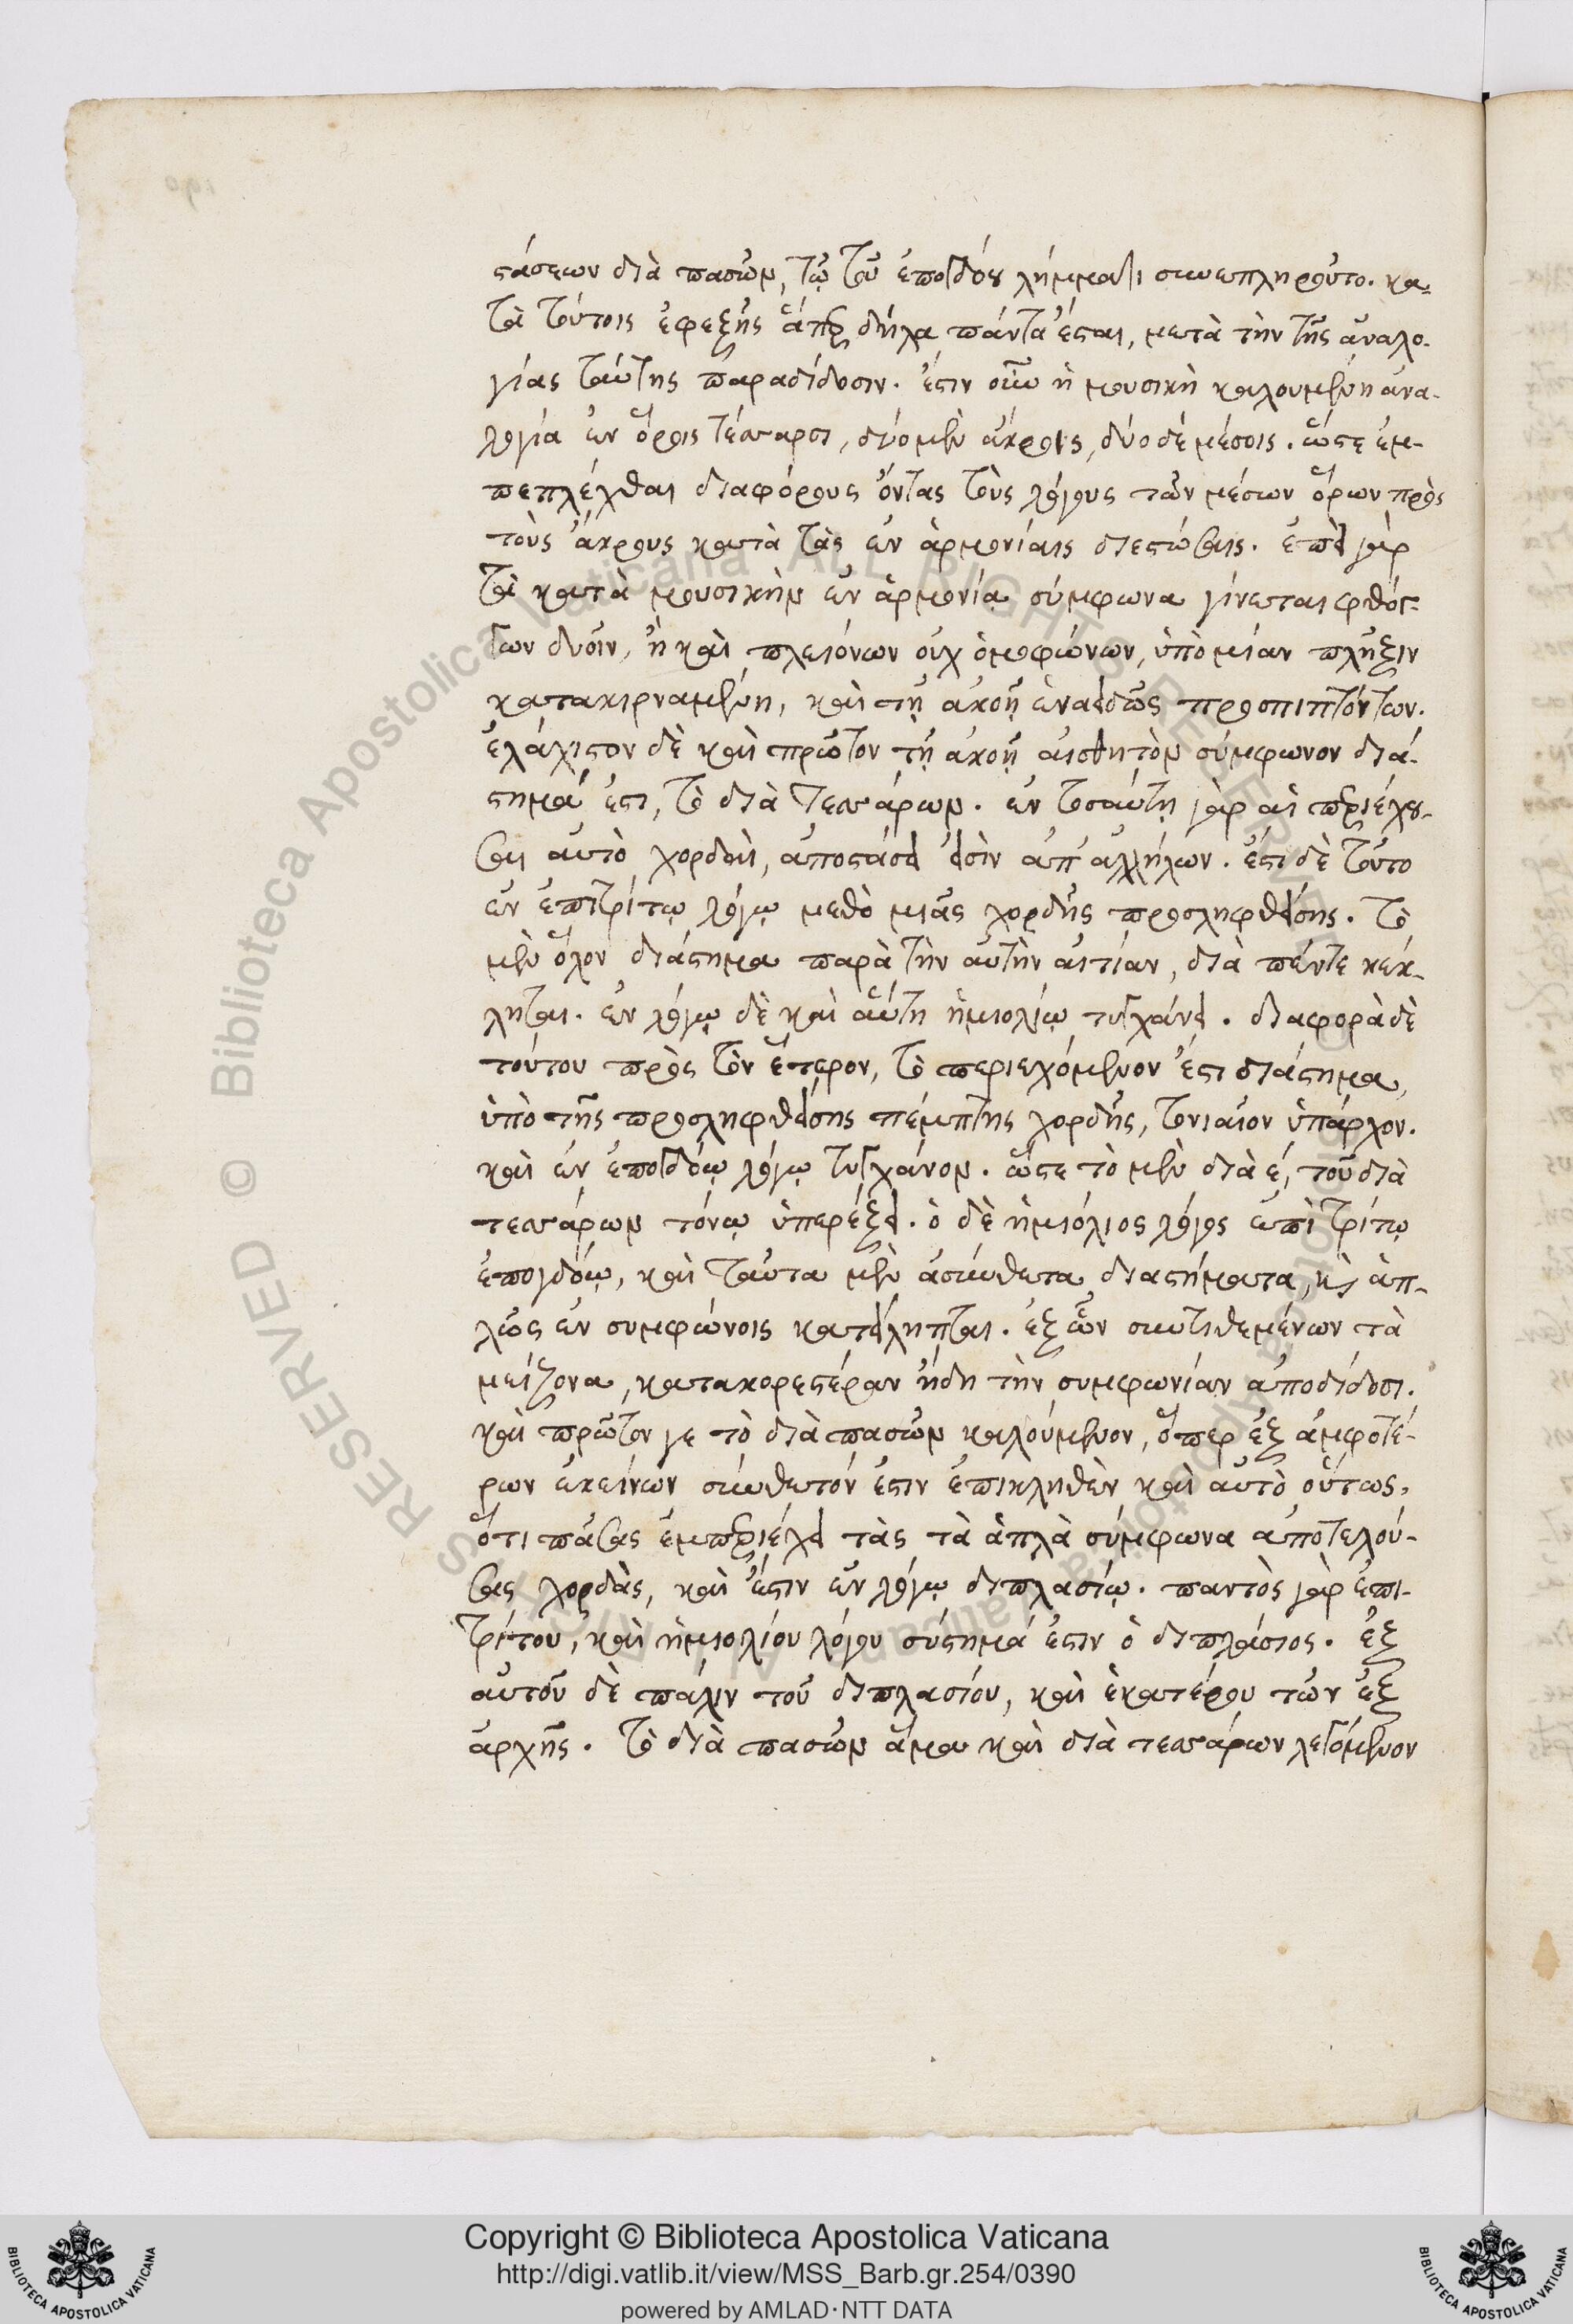 στάσεων διὰ πασῶν, τῷ τοῦ ἐπογδόου λήμματι συνεπληροῦτο. κα-
τὰ τούτοις ἐφεξῆς ἅπερ δῆλα πάντα ἔσται, μετὰ τὴν τῆς ἀναλο-
γίας ταύτης παράδοσιν. ἔστιν οὖν ἡ μουσικὴ καλουμένη ἀνα-
λογία ἐν ὅροις τέσσαρσι, δύο μὲν ἄκροις, δύο δὲ μέσοις. ὥστε ἐμ-
πεπλέχθαι διαφόρους ὄντας τοὺς λόγους τῶν μέσων ὅρων πρὸς
τοὺς ἄκρους κατὰ τὰς ἐν ἁρμονίαις διεστώσαις. ἐπεὶ γὰρ
τὰ κατὰ μουσικὴν ἐν ἁρμονίᾳ σύμφωνα γίνεται φθόγ-
γων δυοῖν, ἢ καὶ πλειόνων οὐχ ὁμοφώνων, ὑπὸ μίαν πλῆξιν
κατακιρναμένη, καὶ τῇ ἀκοῇ ἑνοειδῶς προσπιπτόντων.
ἐλάχιστον δὲ καὶ πρῶτον τῇ ἀκοῇ αἰσθητὸν σύμφωνον διά-
στημά ἐστι, τὸ διὰ τεσσάρων. ἐν τοσαύτῃ γὰρ αἱ περιέχου-
σαι αὐτὸ χορδαὶ, ἀποστάσει εἰσὶν ἀπ' ἀλλήλων. ἔστι δὲ τοῦτο
ἐν ἐπιτρίτῳ λόγῳ μεθὸ μιᾶς χορδῆς προσληφθείσης. τὸ
μὲν ὅλον διάστημα παρὰ τὴν αὐτὴν αἰτίαν, διὰ πέντε κέκ-
ληται. ἐν λόγῳ δὲ καὶ αὕτη ἡμιολίῳ τυγχάνει. διαφορὰ δὲ
τούτου πρὸς τὸν ἕτερον, τὸ περιεχόμενον ἐστι διάστημα,
ὑπὸ τῆς προσληφθείσης πέμπτης χορδῆς, τονιαῖον ὑπάρχον.
καὶ ἐν ἐπογδόῳ λόγῳ τυγχάνον. ὥστε τὸ μὲν διὰ ε, τοῦ διὰ
τεσσάρων τόνῳ ὑπερέξει. ὁ δὲ ἡμιόλιος λόγος ἐπὶ τρίτῳ
ἐπογδόῳ, καὶ ταῦτα μὲν ἀσύνθετα διαστήματα, καὶ ἁπ-
λῶς ἐν συμφώνοις κατείληπται. ἐξ ὧν συντιθεμένων τὰ
μείζονα, κατακορεστέραν ἤδη τὴν συμφωνίαν ἀποδίδοσι.
καὶ πρῶτον γε τὸ διὰ πασῶν καλούμενον, ὅπερ ἐξ ἀμφοτέ-
ρων ἐκείνων σύνθετόν ἐστιν ἐπικληθὲν καὶ αὐτὸ οὕτως,
ὅτι πάσας ἐμπεριέχει τὰς τὰ ἁπλὰ σύμφωνα ἀποτελού-
σας χορδὰς, καὶ ἔστιν ἐν λόγῳ διπλασίῳ. παντὸς γὰρ ἐπι-
τρίτου, καὶ ἡμιολίου λόγου σύστημά ἐστιν ὁ διπλάσιος. ἐξ
αὐτοῦ δὲ πάλιν τοῦ διπλασίου, καὶ ἑκατέρου τῶν ἐξ
ἀρχῆς. τὸ διὰ πασῶν ἅμα καὶ διὰ τεσσάρων λεγόμενον
Copyright © Biblioteca Apostolica Vaticana
http://digi.vatlib.it/view/MSS_Barb.gr.254/0390
powered by AMLAD·NTT DATA